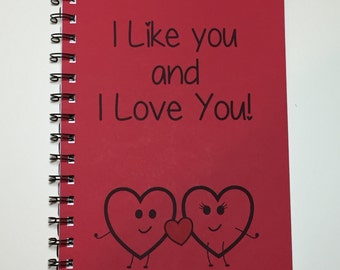 I Like you
and
I Love You!